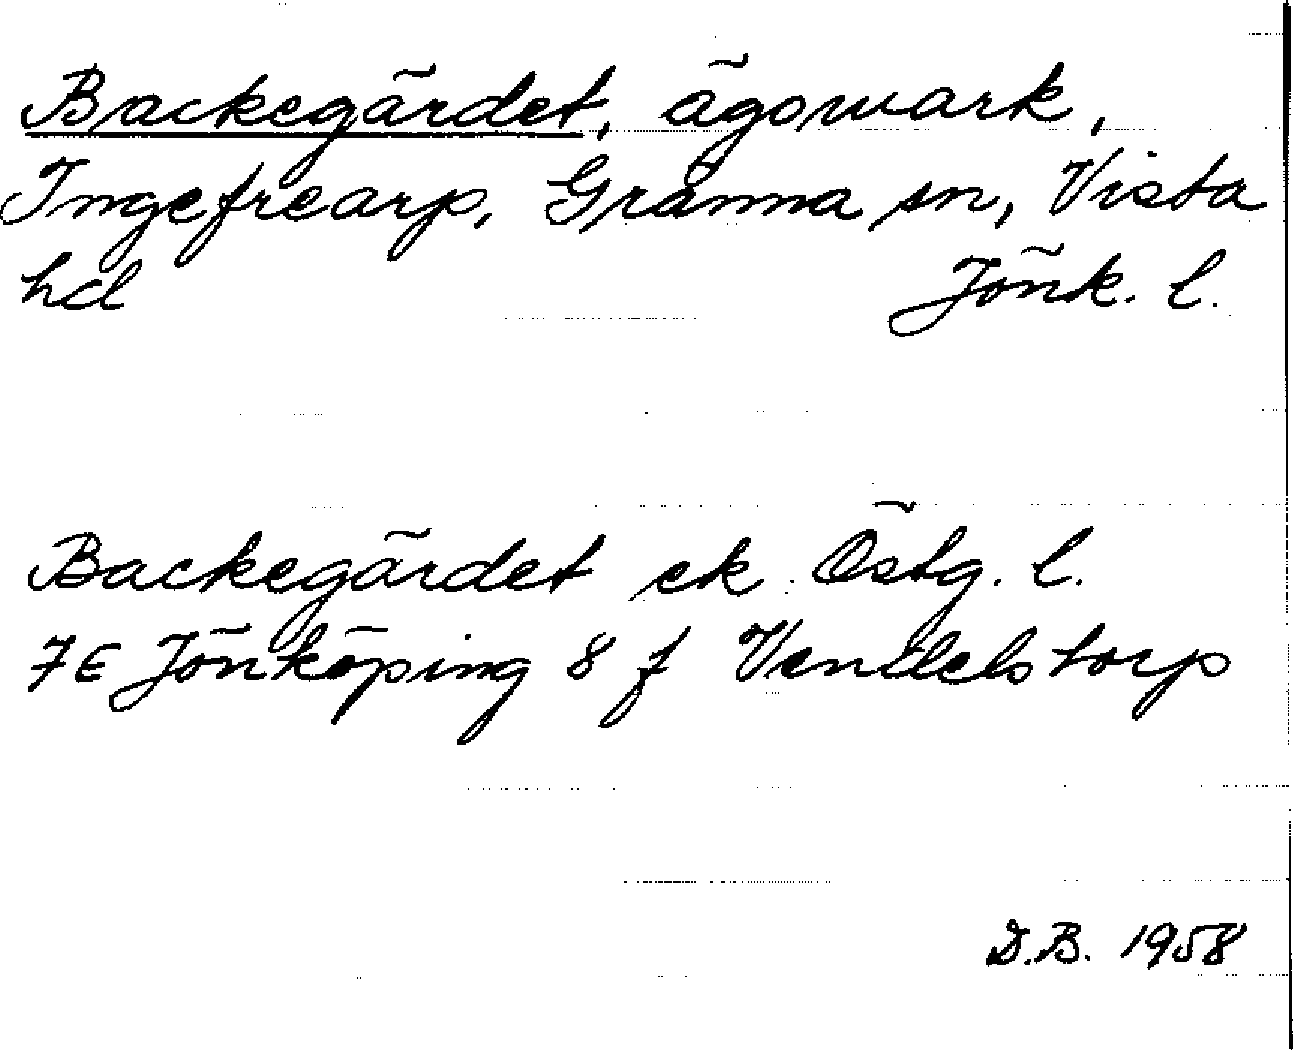 Backegärdet, ägomark,
Ingefrearp, Gränna sn, Vista
hd Jönk. l.
Backegärdet ek Östg. l.
7E Jönköping 8 f Vendelstorp
D.B. 1958